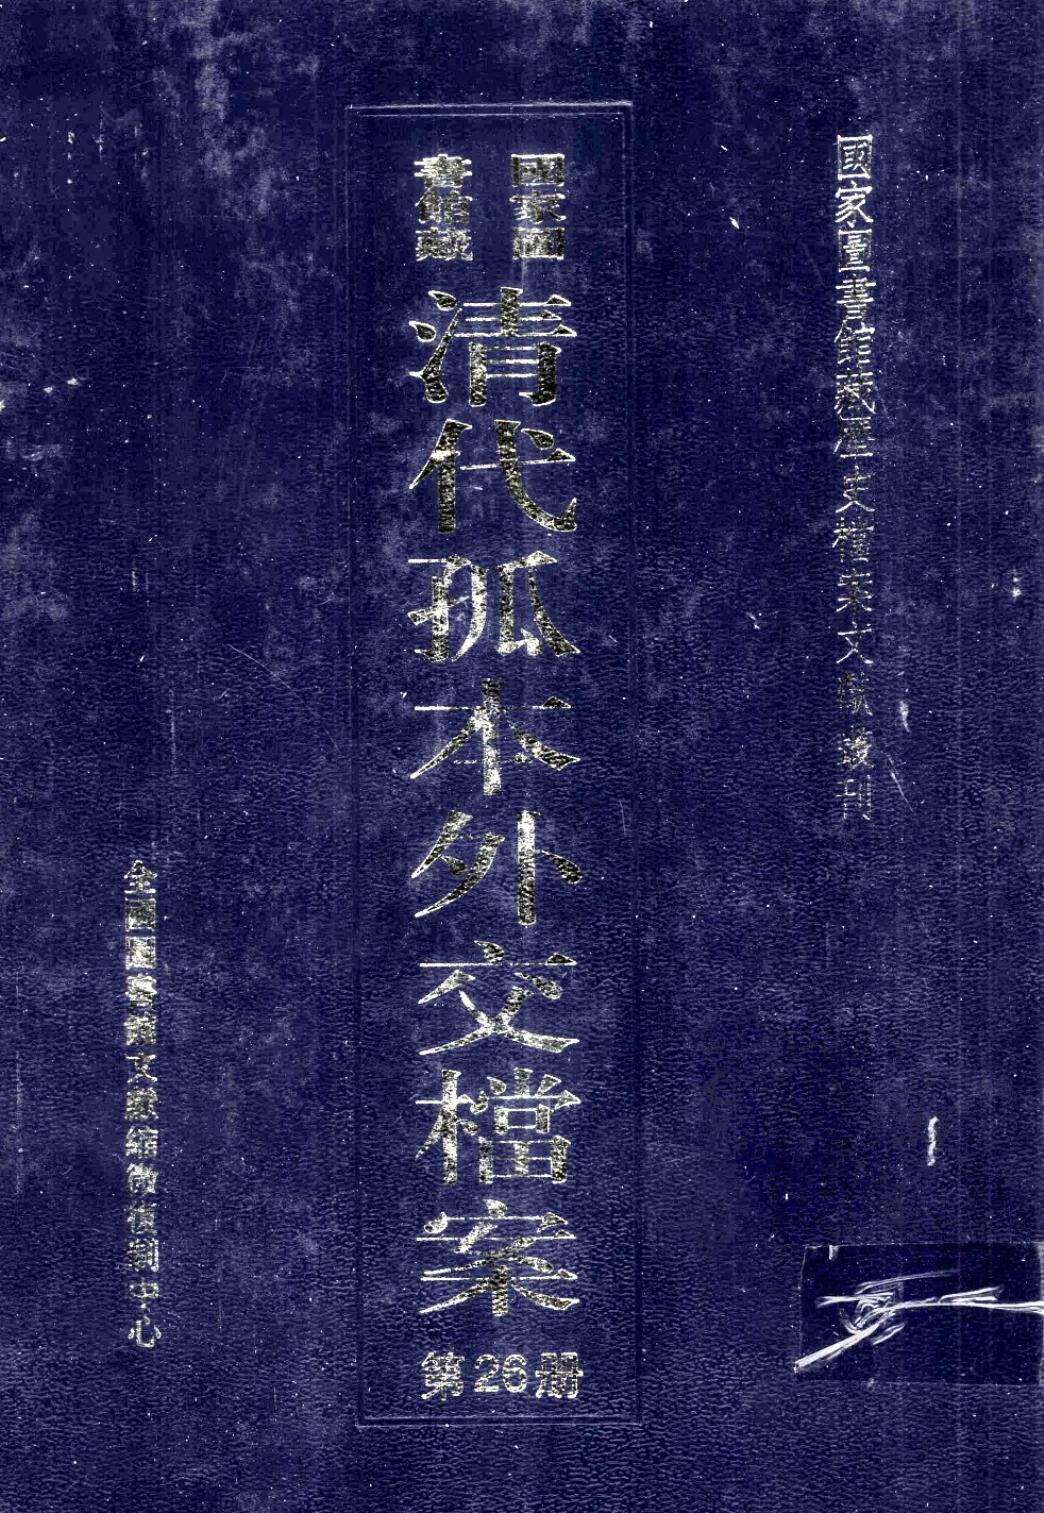 國家圖書館藏歷史檔案文獻叢刊
國家圖
書館藏
清代孤本外交檔案
第26册
全國圖書館文獻縮微複製中心